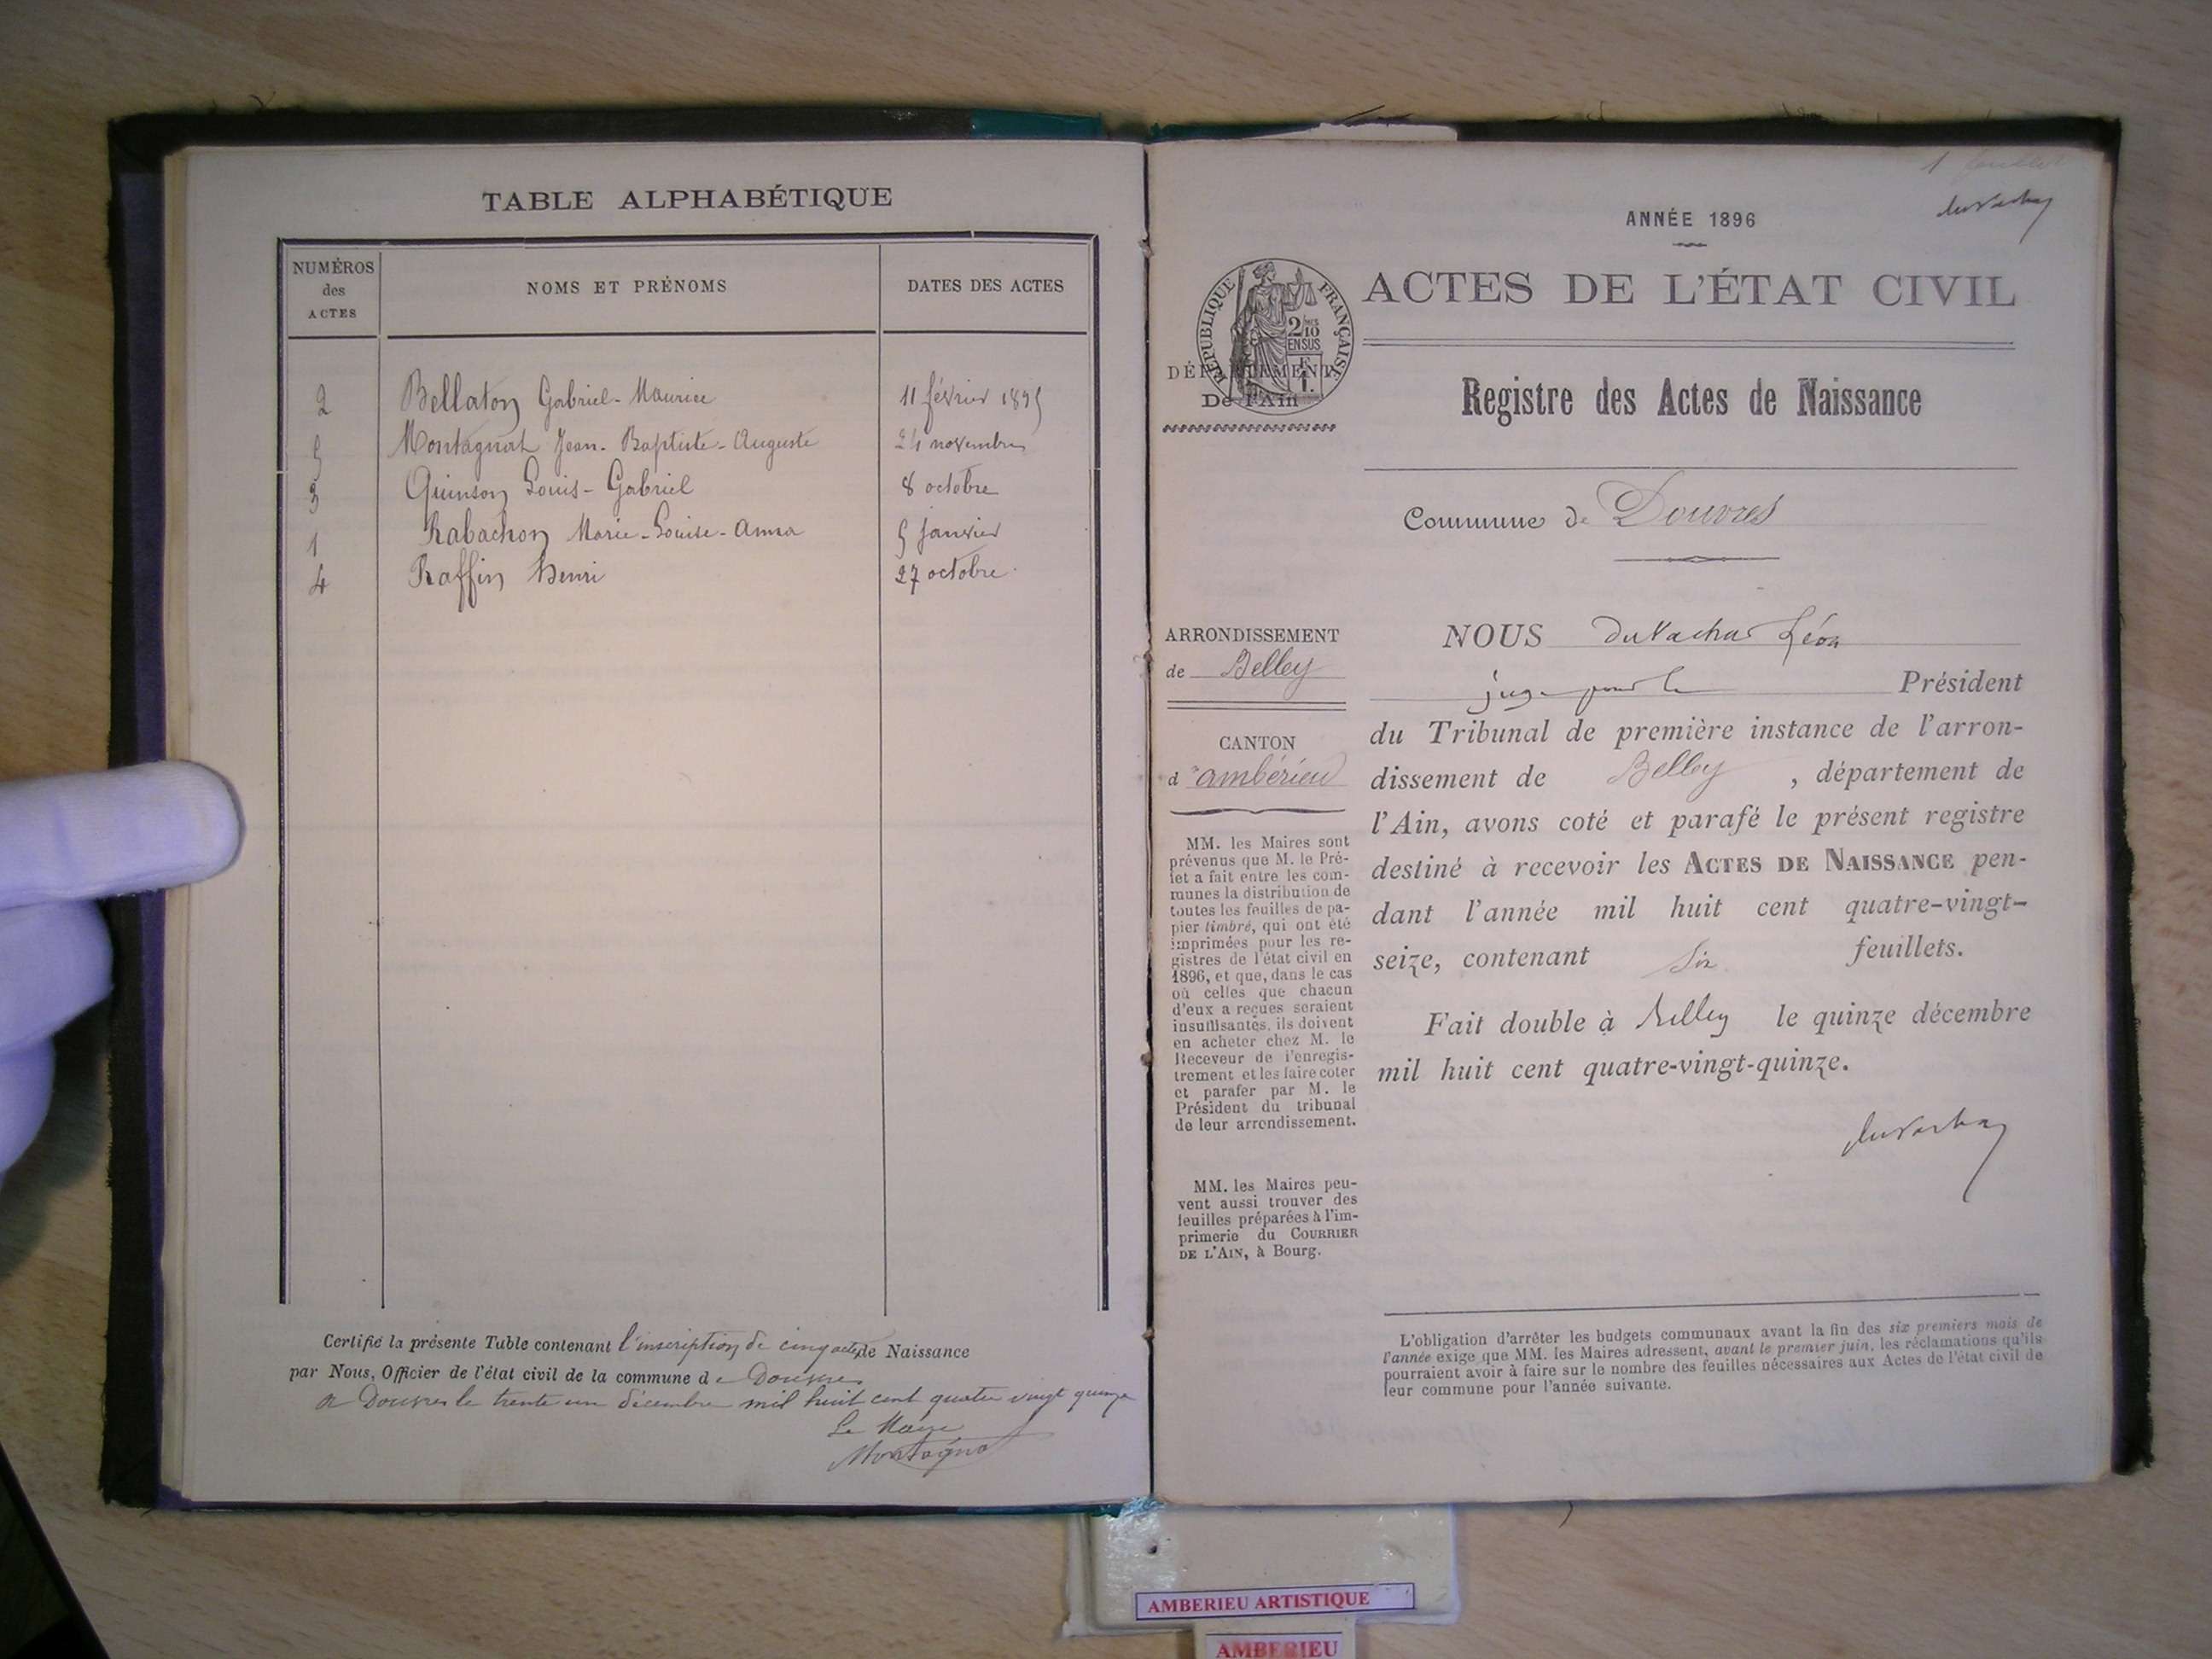 TABLE ALPHABÉTIQUE
NUMÉROS des ACTES
NOMS ET PRÉNOMS
DATES DES ACTES
2 Bellaton Gabriel-Maurice 11 février 1895
5 Montagnat Jean-Baptiste-Auguste 24 novembre
3 Quinson Louis-Gabriel 8 octobre
1 Rabachon Marie-Louise-Anna 5 janvier
4 Raffin Henri 27 octobre
Certifié la présente Table contenant l'inscription de cinq actes de Naissance
par Nous, Officier de l'état civil de la commune de Douvres
a Douvres le trente un décembre mil huit cent quatre vingt quinze
Le Maire
Montagnat
1
ANNÉE 1896
RÉPUBLIQUE FRANÇAISE
2/10 EN SUS
ACTES DE L'ÉTAT CIVIL
DÉPARTEMENT
De l'Ain
Registre des Actes de Naissance
Commune de Douvres
ARRONDISSEMENT
de Belley
CANTON
d'ambérieu
MM. les Maires sont
prévenus que M. le Pré-
fet a fait entre les com-
munes la distribution de
toutes les feuilles de pa-
pier timbré, qui ont été
imprimées pour les re-
gistres de l'état civil en
1896, et que, dans le cas
où celles que chacun
d'eux a reçues seraient
insuffisantes, ils doivent
en acheter chez M. le
Receveur de l'enregis-
trement et les faire coter
et parafer par M. le
Président du tribunal
de leur arrondissement.
MM. les Maires peu-
vent aussi trouver des
feuilles préparées à l'im-
primerie du COURRIER
DE L'AIN, à Bourg.
NOUS Duvachat Léon
juge pour le Président
du Tribunal de première instance de l'arron-
dissement de Belley, département de
l'Ain, avons coté et parafé le présent registre
destiné à recevoir les ACTES DE NAISSANCE pen-
dant l'année mil huit cent quatre-vingt-
seize, contenant six feuillets.
Fait double à Belley le quinze décembre
mil huit cent quatre-vingt-quinze.
L'obligation d'arrêter les budgets communaux avant la fin des six premiers mois de
l'année exige que MM. les Maires adressent, avant le premier juin, les réclamations qu'ils
pourraient avoir à faire sur le nombre des feuilles nécessaires aux Actes de l'état civil de
leur commune pour l'année suivante.
AMBERIEU ARTISTIQUE
AMBERIEU